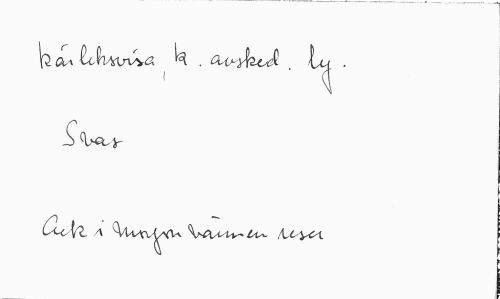 kärleksvisa, k. avsked. ly.
Svar
Ack i morgon vännen reser